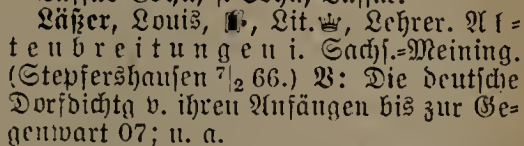 Läßer, Louis, Lit. Lehrer. Al=
tenbreitungen i. Sachs.=Meining.
(Stepfershausen 7/2 66.) V: Die deutsche
Dorfdichtg v. ihren Anfängen bis zur Ge=
genwart 07; u. a.